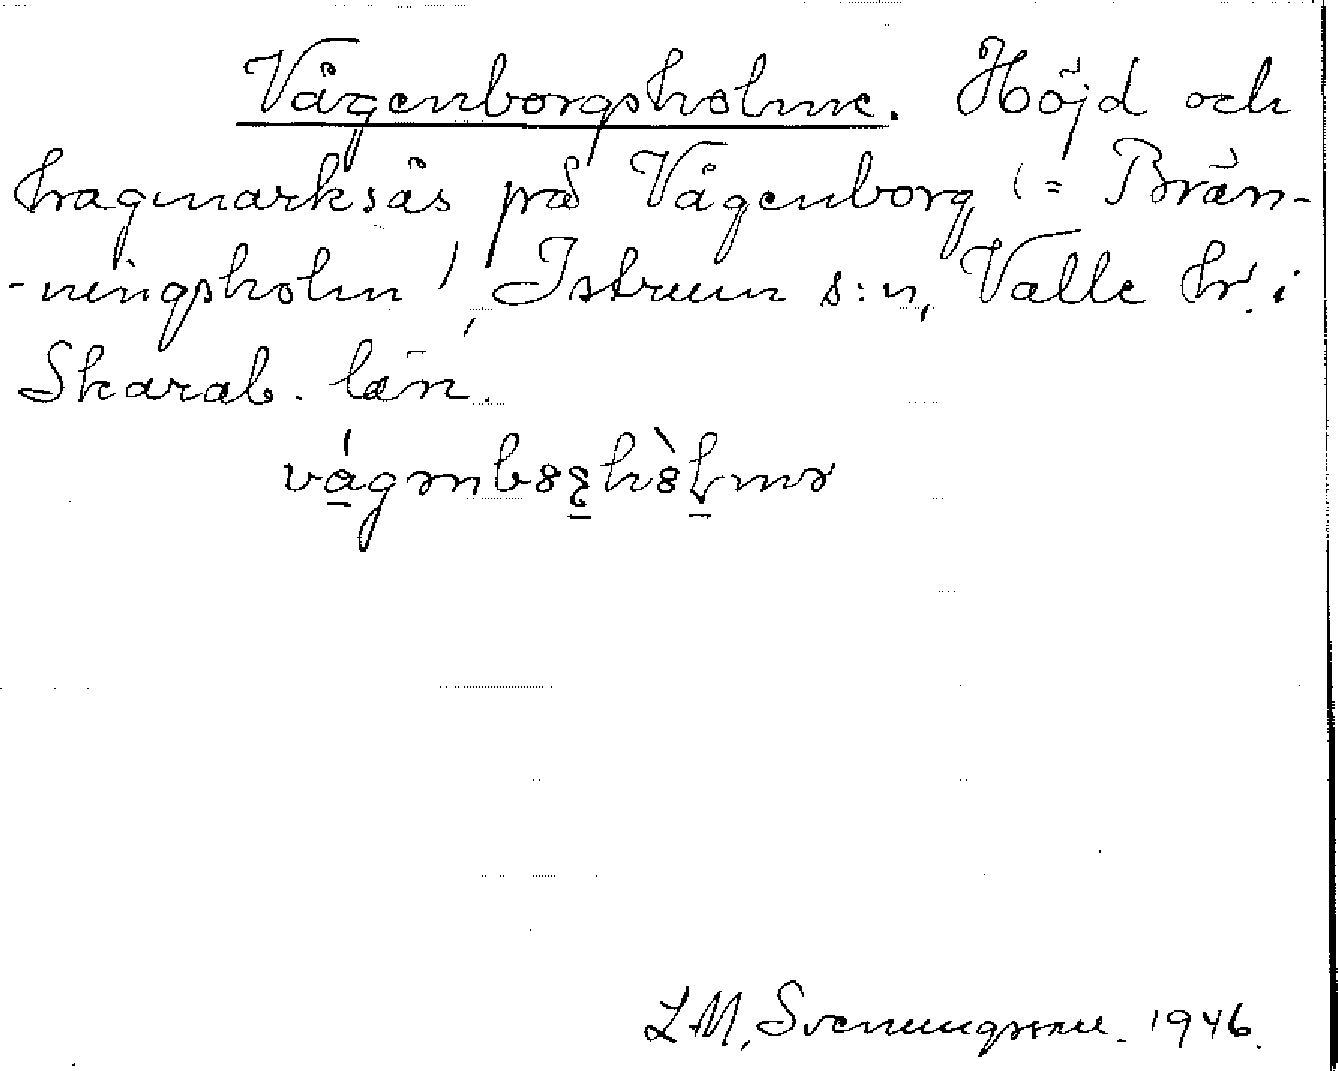 Vågenborgsholme. Höjd och
hagmarksås på Vågenborg (= Brän-
-ningsholm), Istrum s:n, Valle hr. i
Skarab. län.
L M, Svenungsson. 1946.